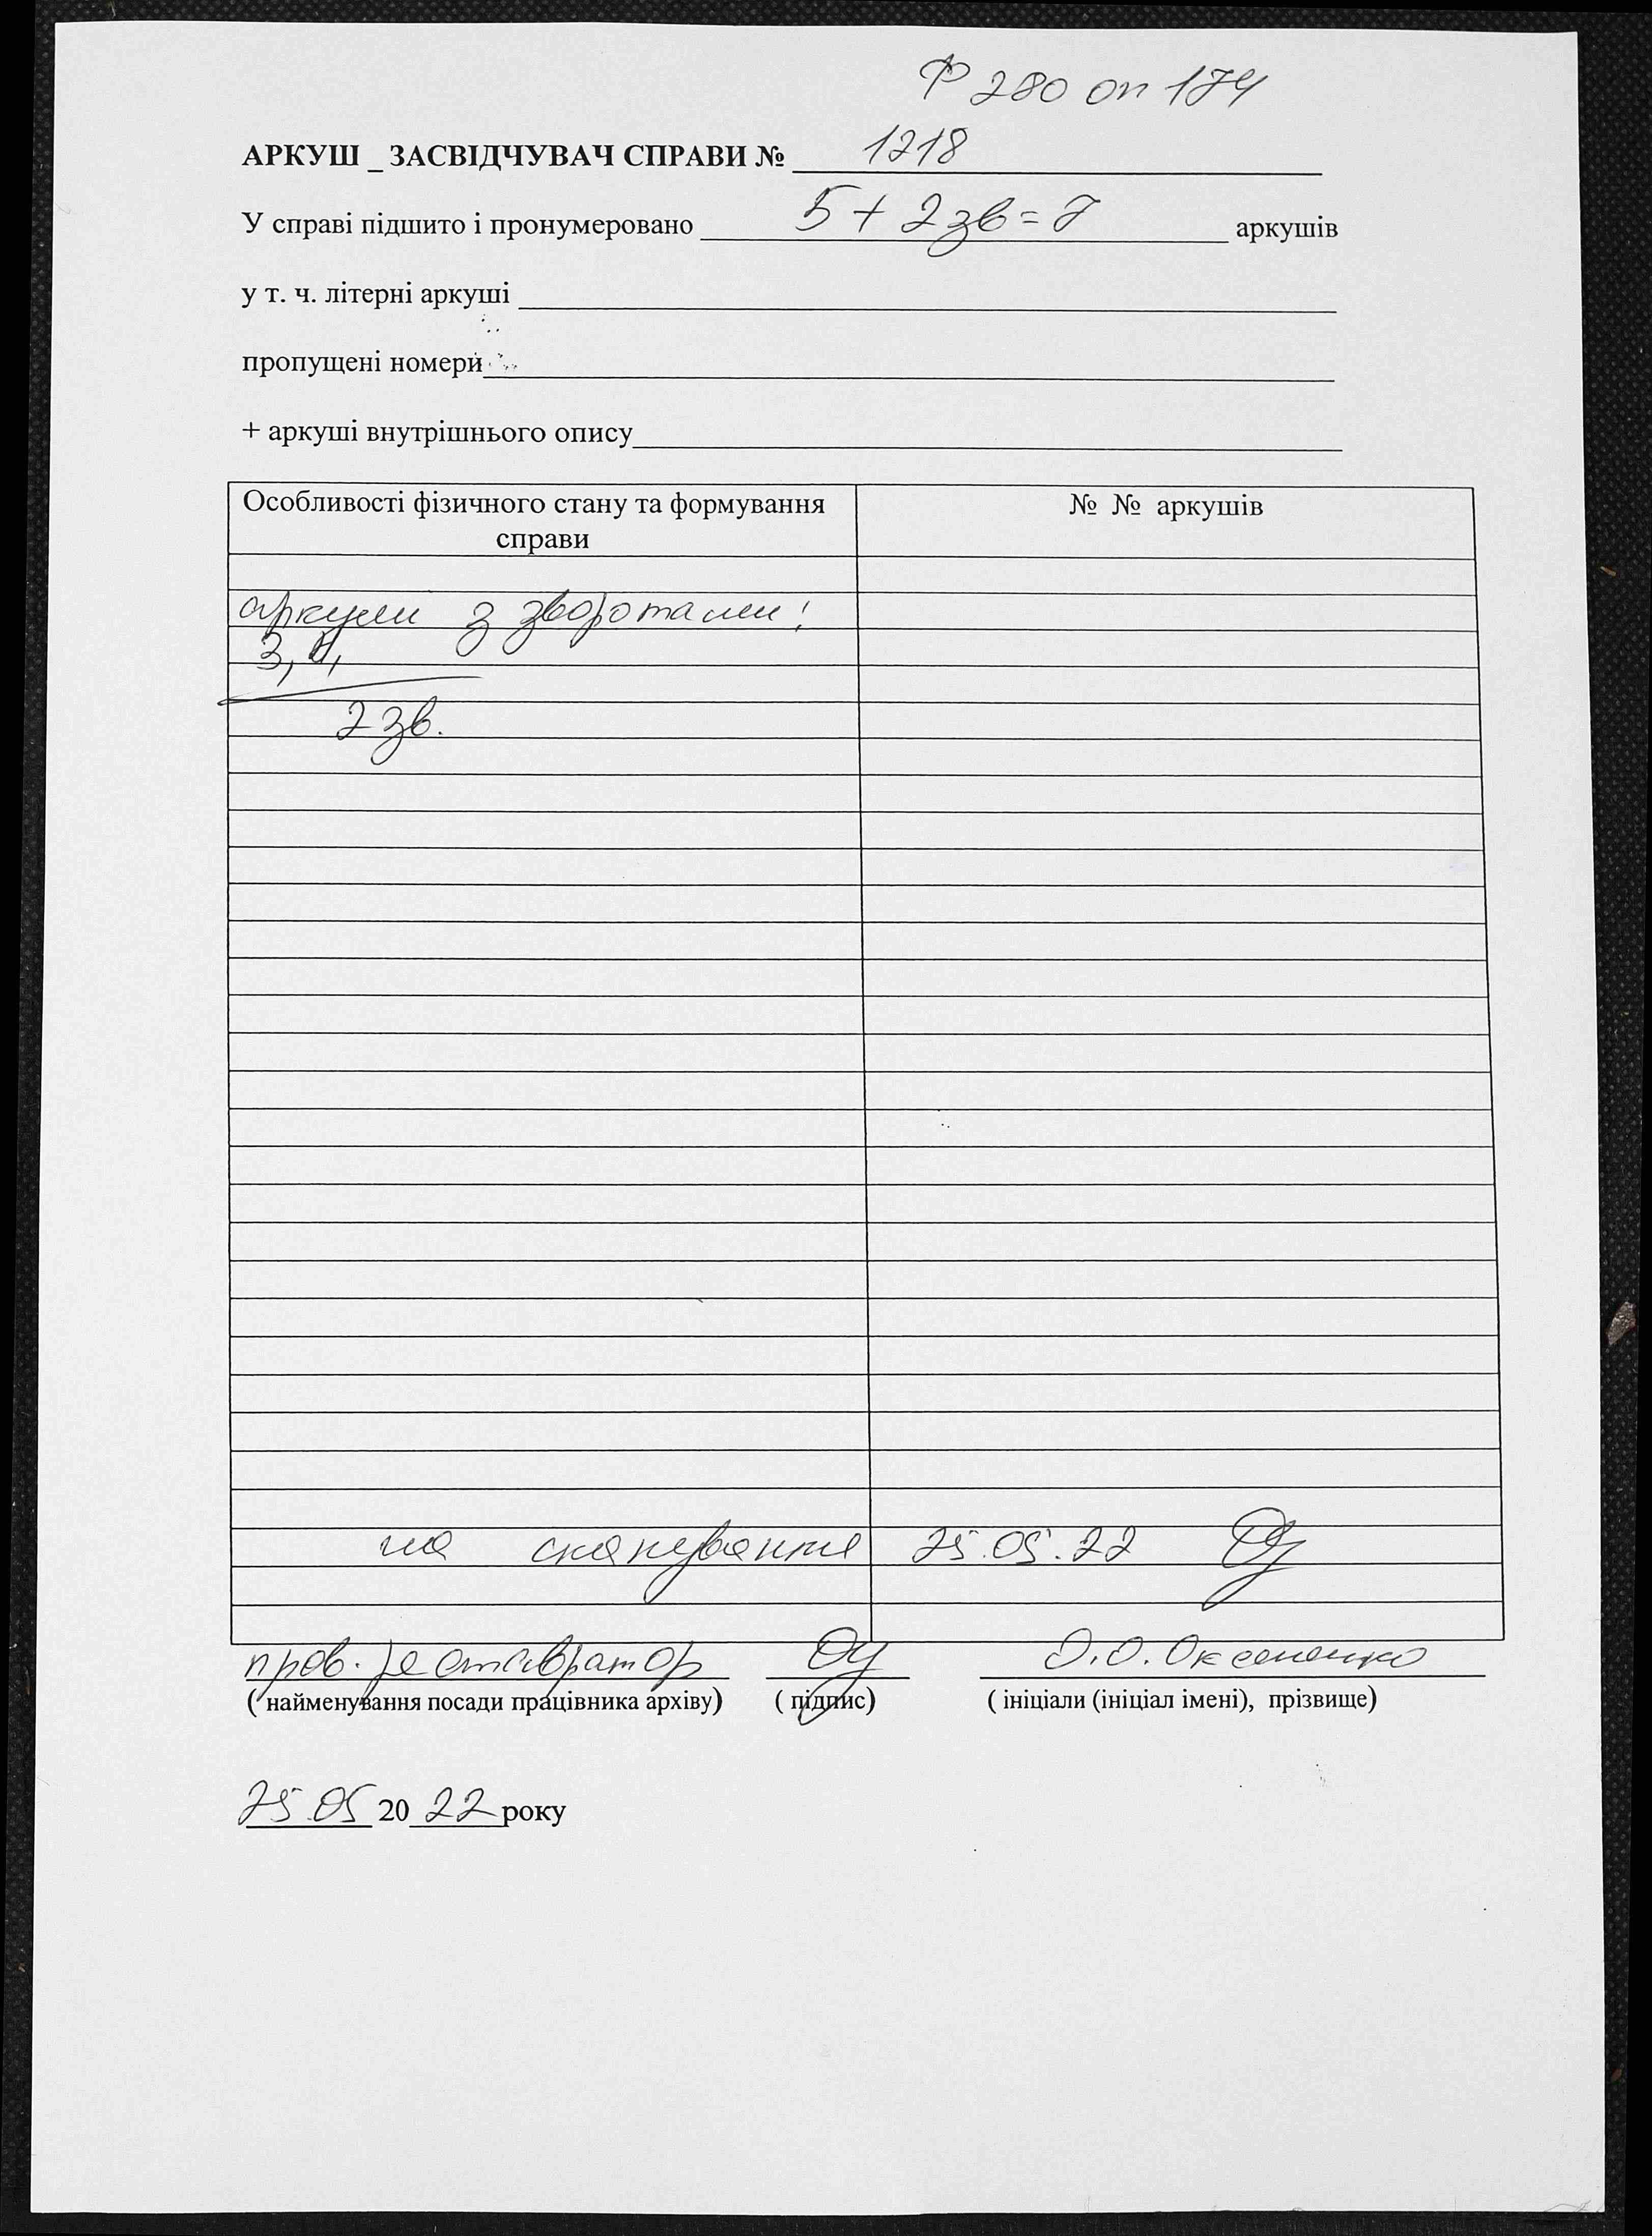 Ф 280 оп 174
АРКУШ _ ЗАСВІДЧУВАЧ СПРАВИ № 1218
У справі підшито і пронумеровано 5 + 2 зв = 7 аркушів
у т. ч. літерні аркуші
пропущені номери
+ аркуші внутрішнього опису
Особливості фізичного стану та формування справи № № аркушів
аркуші з зворотами:
3, 4,
2 зв.
на сканування 25.05.22
пров. реставратор О.О. Оксененко
( найменування посади працівника архіву) ( підпис) ( ініціали (ініціал імені), прізвище)
25.05 2022 року